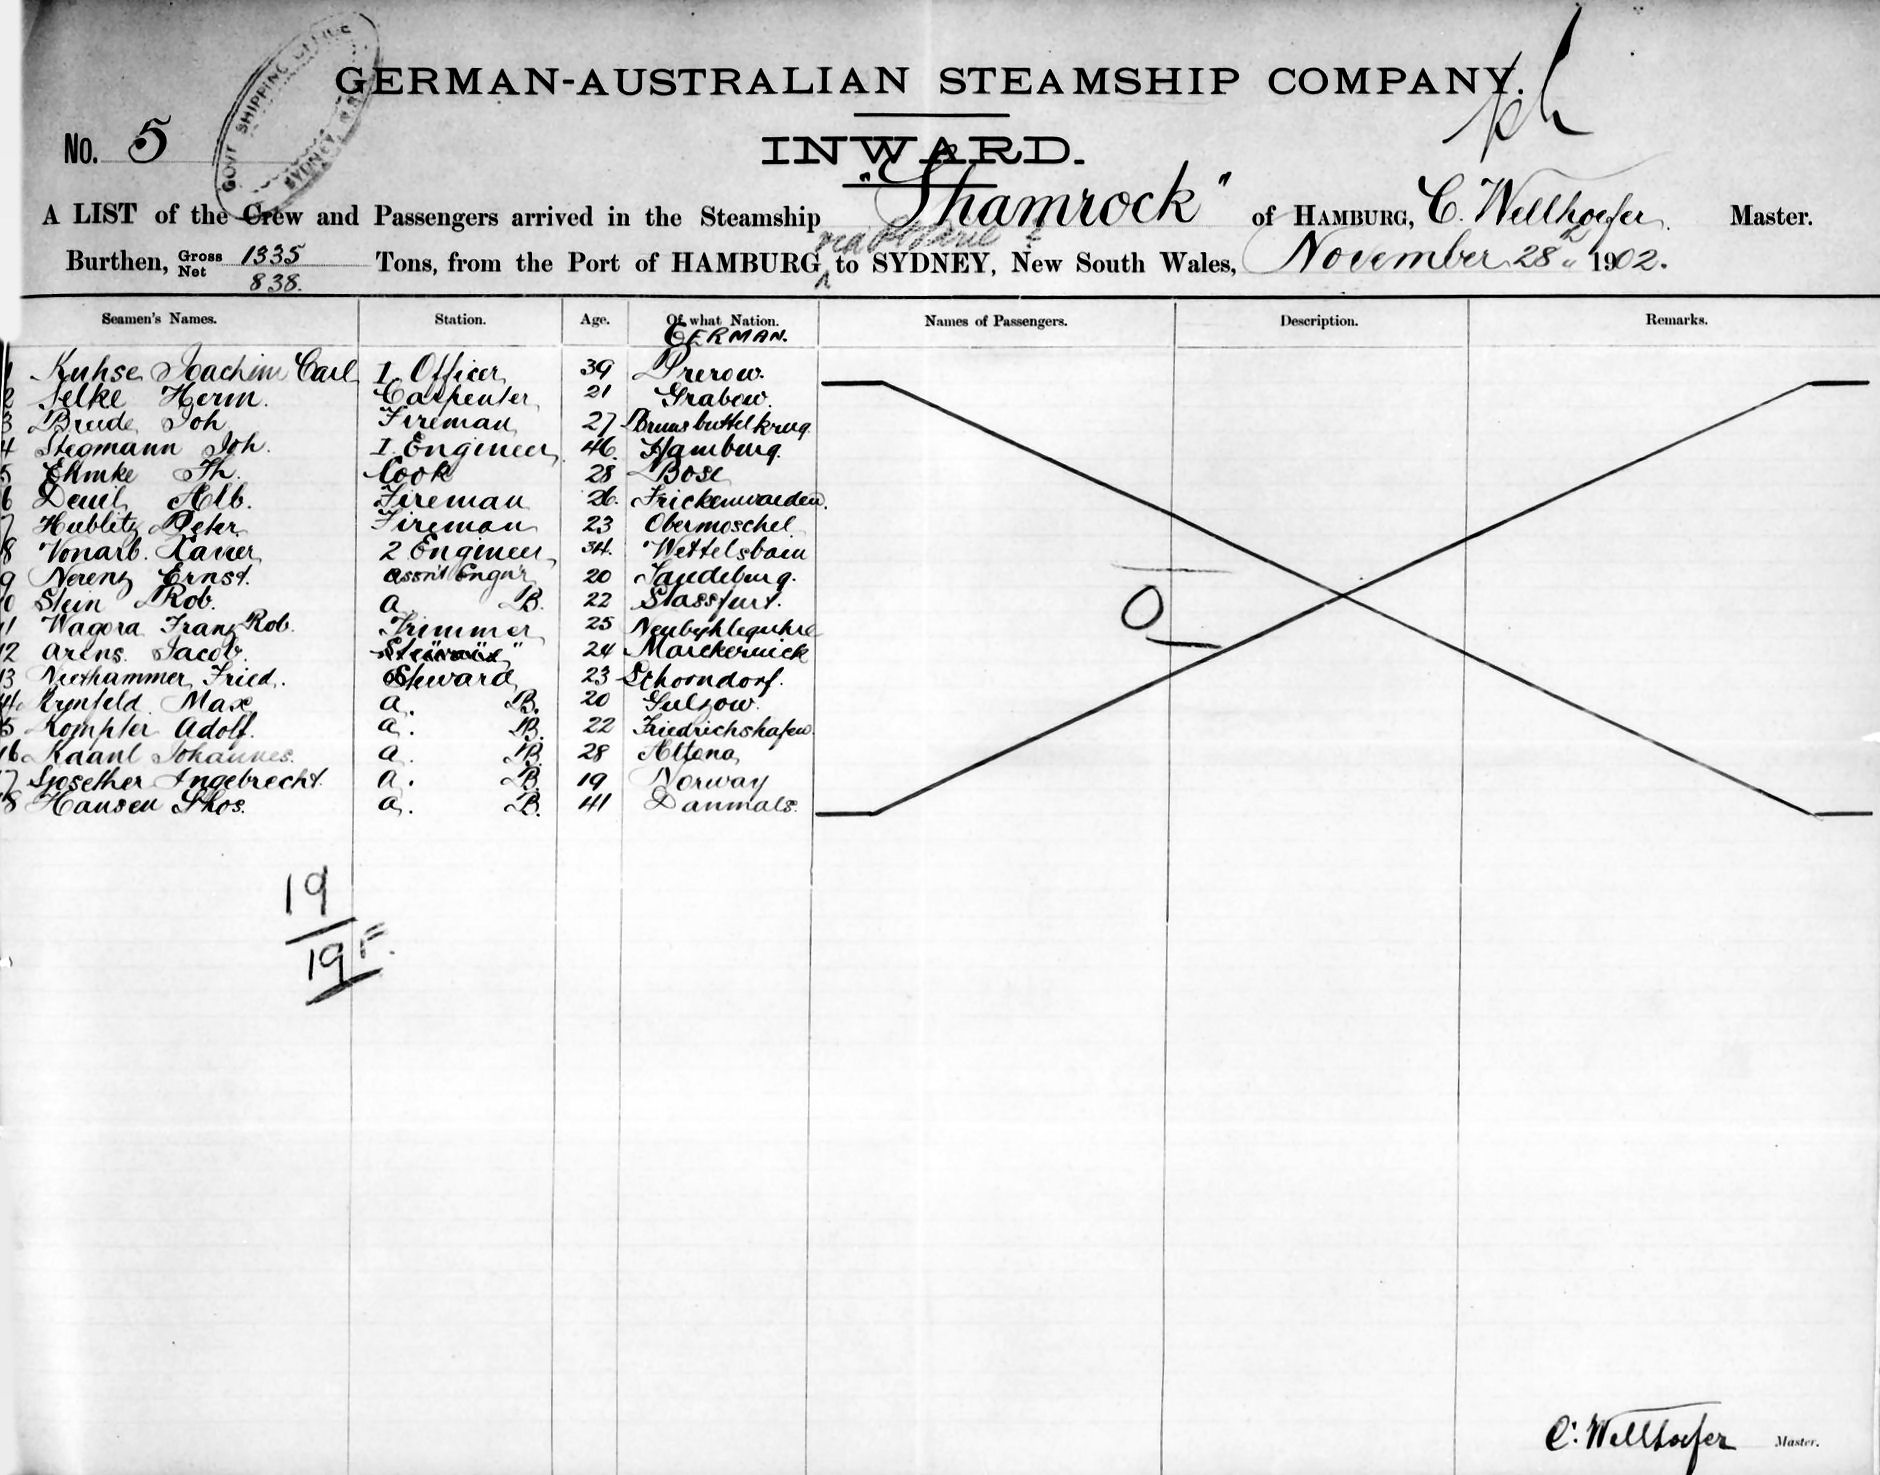 GOVT SHIPPING OFFICE
SYDNEY, N.S.W.
GERMAN-AUSTRALIAN STEAMSHIP COMPANY.
No. 5
INWARD.
A LIST of the Crew and Passengers arrived in the Steamship "Shamrock" of HAMBURG, C. Wellhoefer. Master.
Burthen, Gross 1335 Net 838. Tons, from the Port of HAMBURG via to SYDNEY, New South Wales, November 28th 1902.
Seamen's Names. Station. Age. Of what Nation. Names of Passengers. Description. Remarks.
GERMAN.
1 Kuhse Joachim Carl 1 Officer 39 Prerow.
2 Selke Herm. Carpenter 21 Grabow.
3 Joh Fireman 27 Brunsbüttelkrug.
4 Stegmann Joh. 1. Engineer 46. Hamburg.
5 Ehmke Th. Cook 28 Bose
6 Alb. Fireman 26. Frickenwaeden.
7 Hublitz Peter. Fireman 23 Obermoschel
8 Vonarb. Xaver 2 Engineer 34. Wettelsbain
9 Nerenz Ernst. Assn't Engn'r 20 Jandeburg.
10 Stein Rob. A. B. 22 Stassfurt.
11 Wagora Franz Rob. Trimmer 25
12 Arens Jacob. " 24
13 Niethammer Fried. Steward 23 Schorndorf.
14 Max A. B. 20 Gulzow.
15 Kompter Adolf. A. B. 22 Friedrichshafen.
16 Johannes. A. B. 28 Altona
17 Ingebrecht. A. B. 19 Norway
18 Hansen Thos. A. B. 41
O
19
19 F.
C. Wellhoefer Master.